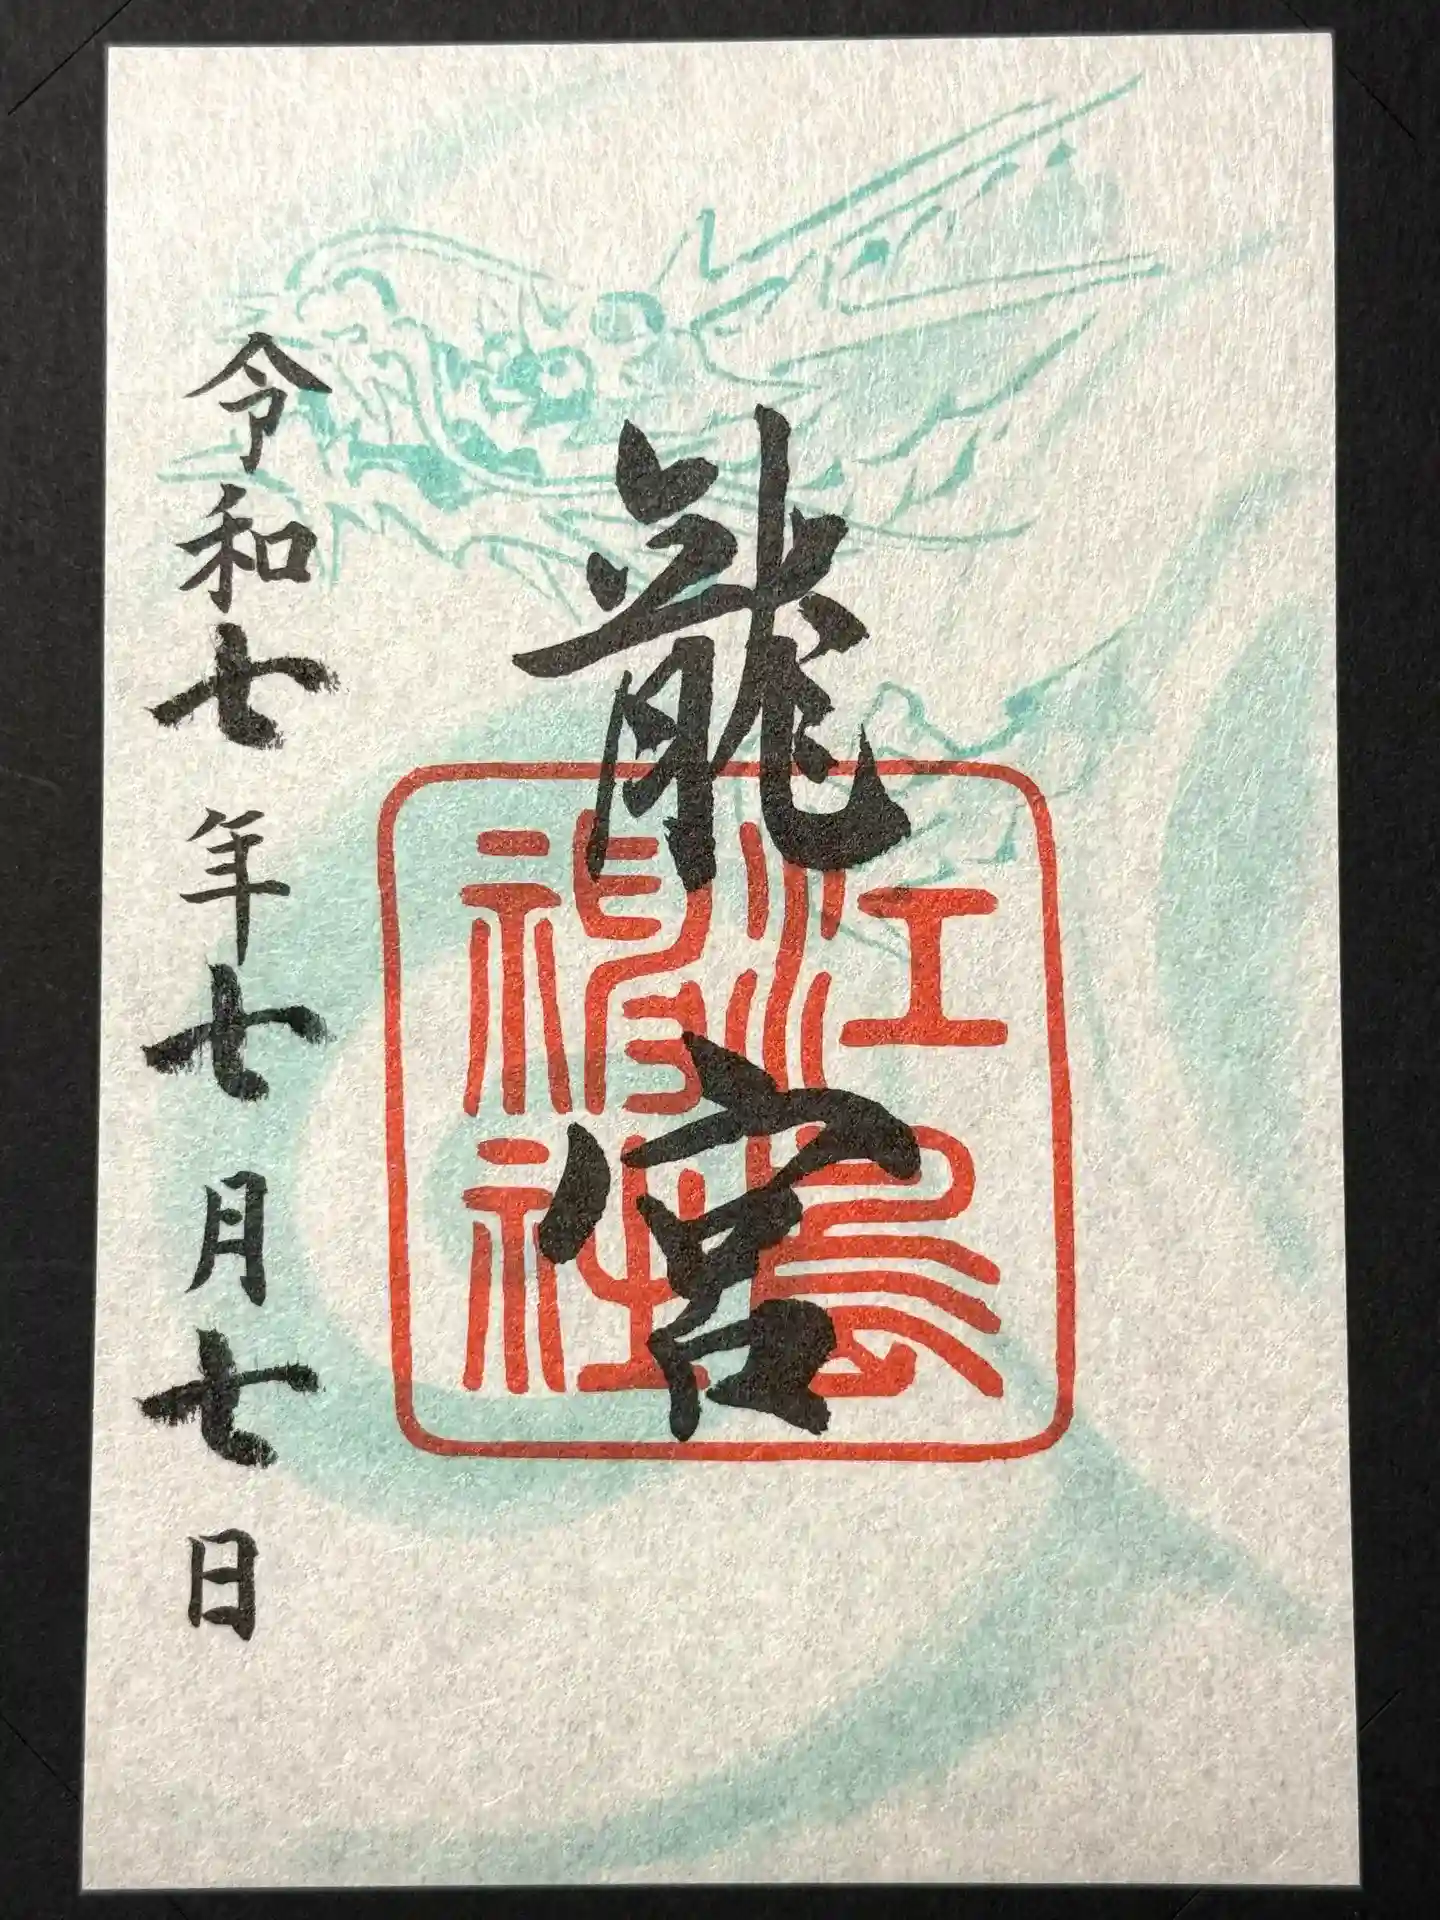 龍宮
江島神社
令和七年七月七日